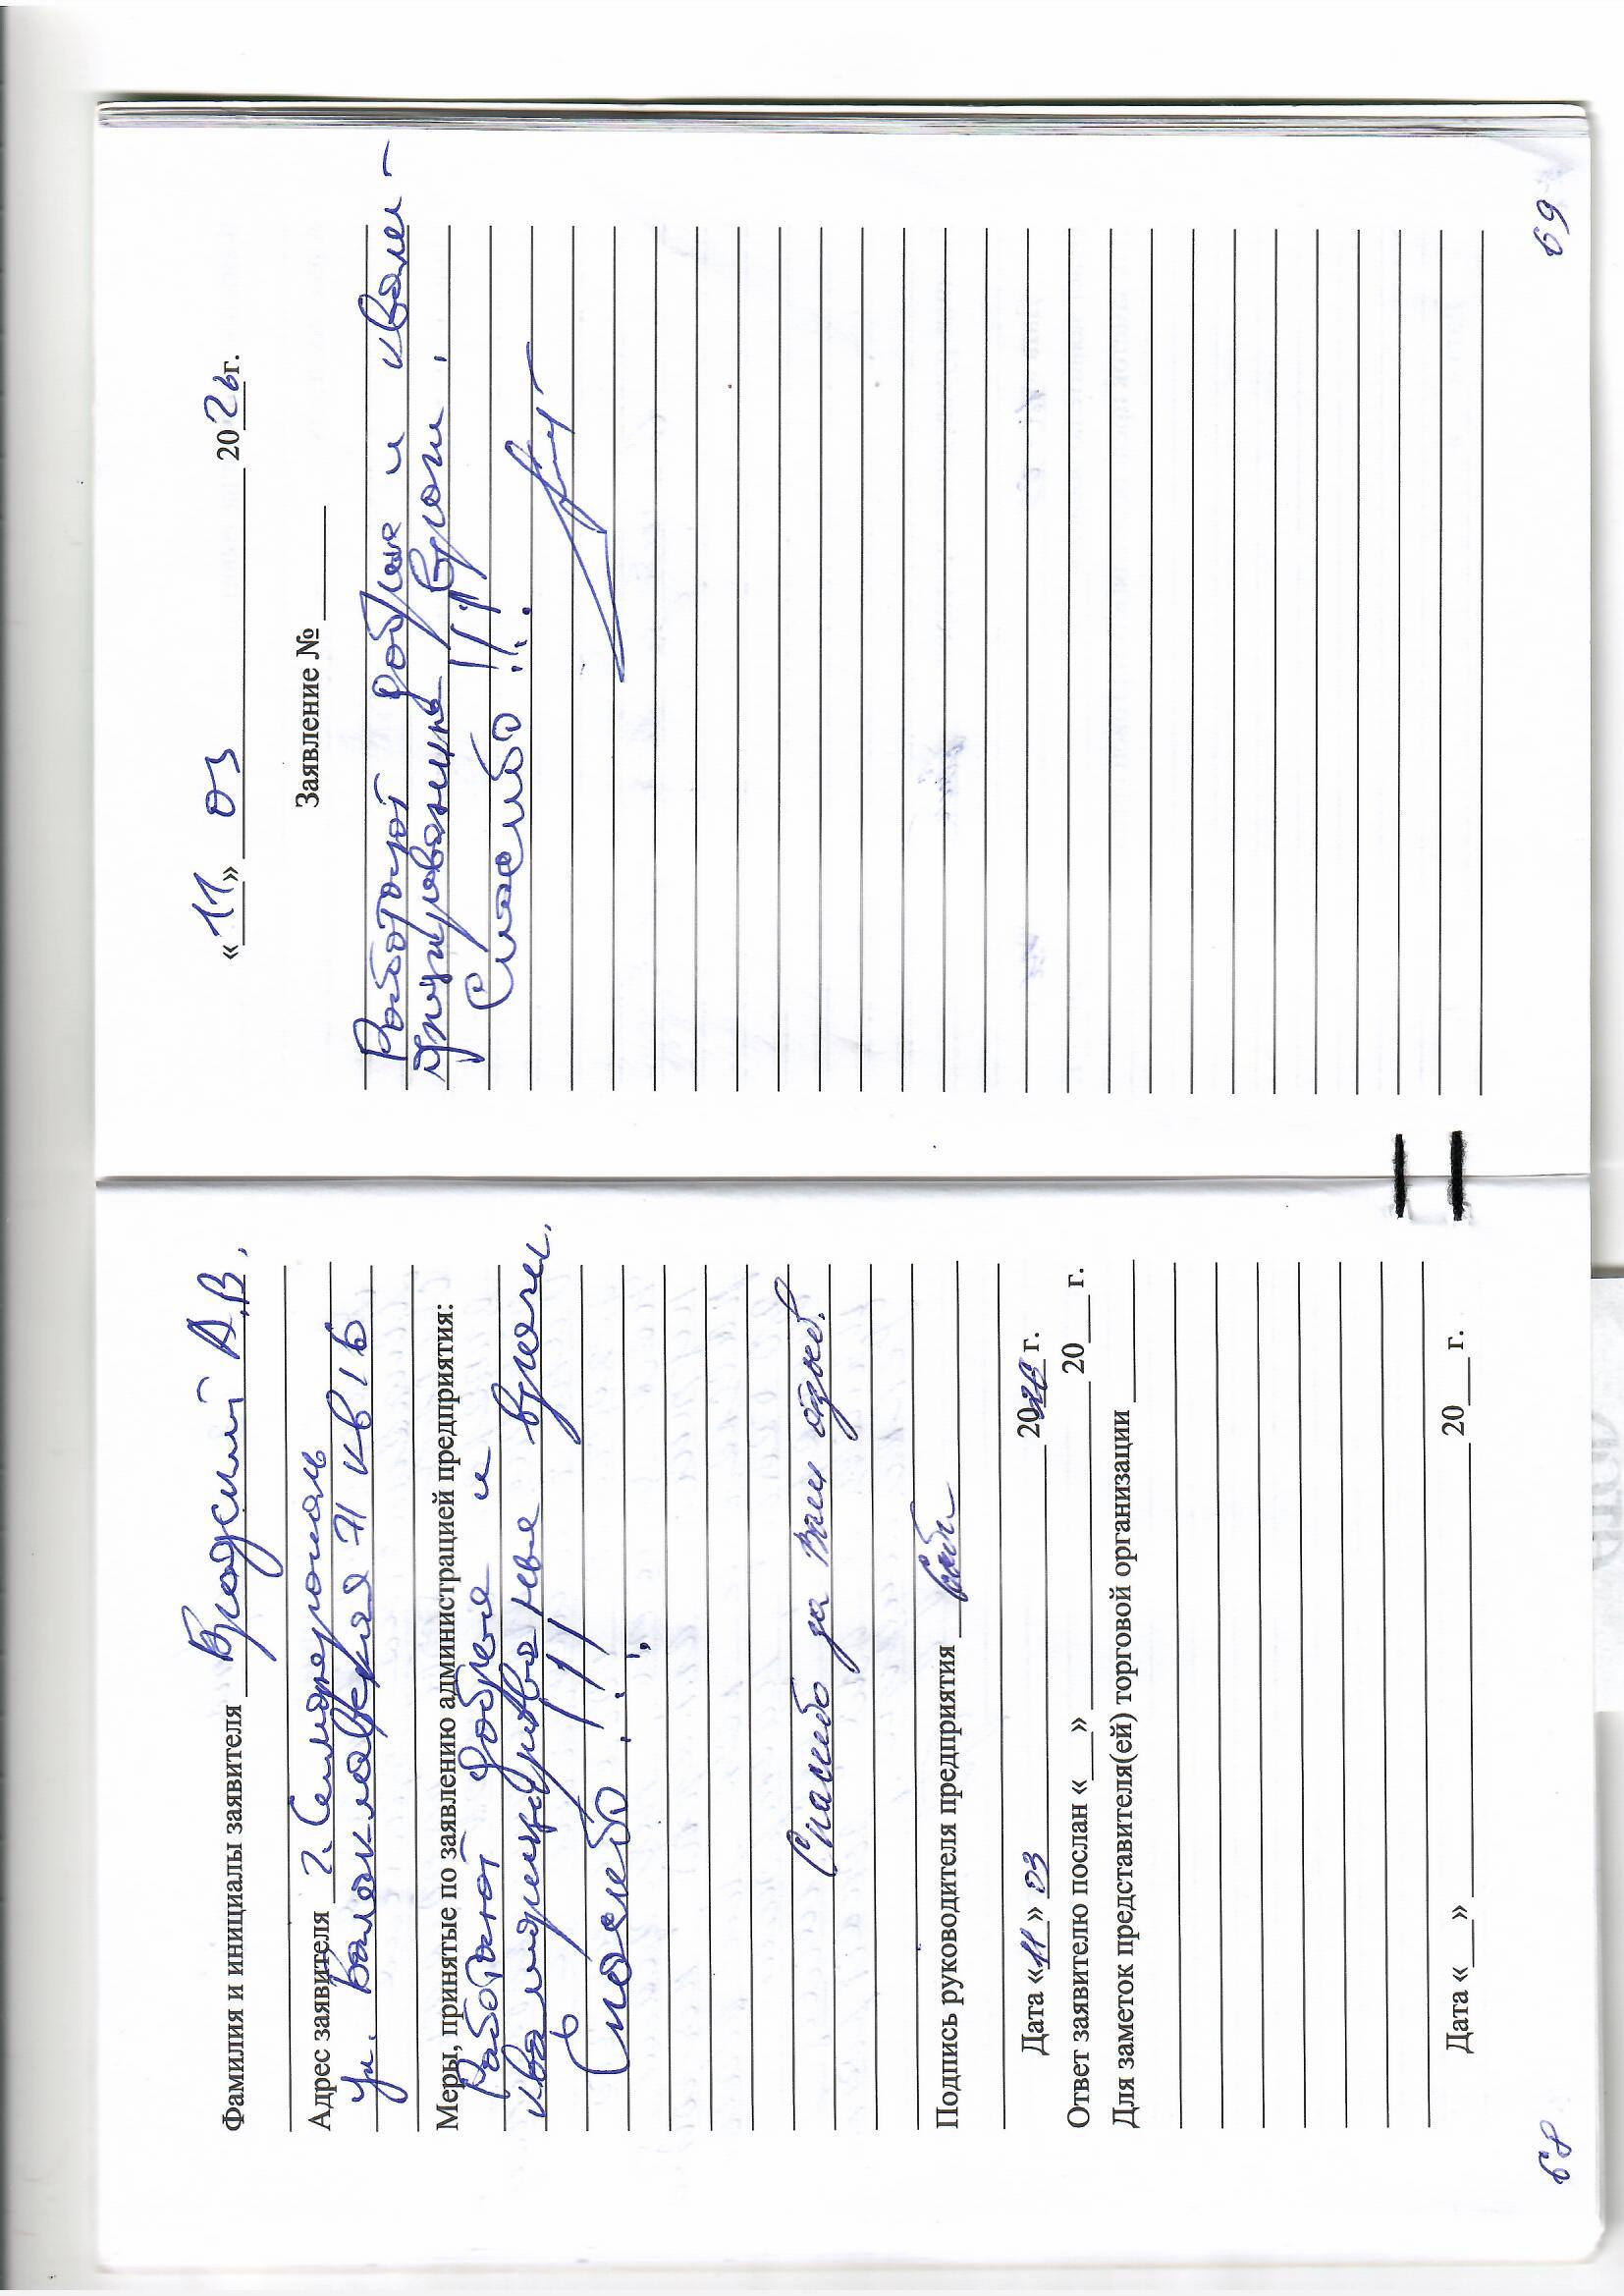 Фамилия и инициалы заявителя Бродский А.В.
Адрес заявителя г. Симферополь
ул. Балаклавская 71 кв 116
Меры, принятые по заявлению администрацией предприятия:
Работают добрые и
квалифицированные врачи.
Спасибо!!!
Спасибо за Ваш отзыв.
Подпись руководителя предприятия
Дата «11» 03 2026 г.
Ответ заявителю послан «___» 20___ г.
Для заметок представителя(ей) торговой организации
Дата «___» 20___ г.
68
«11» 03 2026г.
Заявление №
Работают добрые и квали-
фицированные врачи.
Спасибо!!!
69